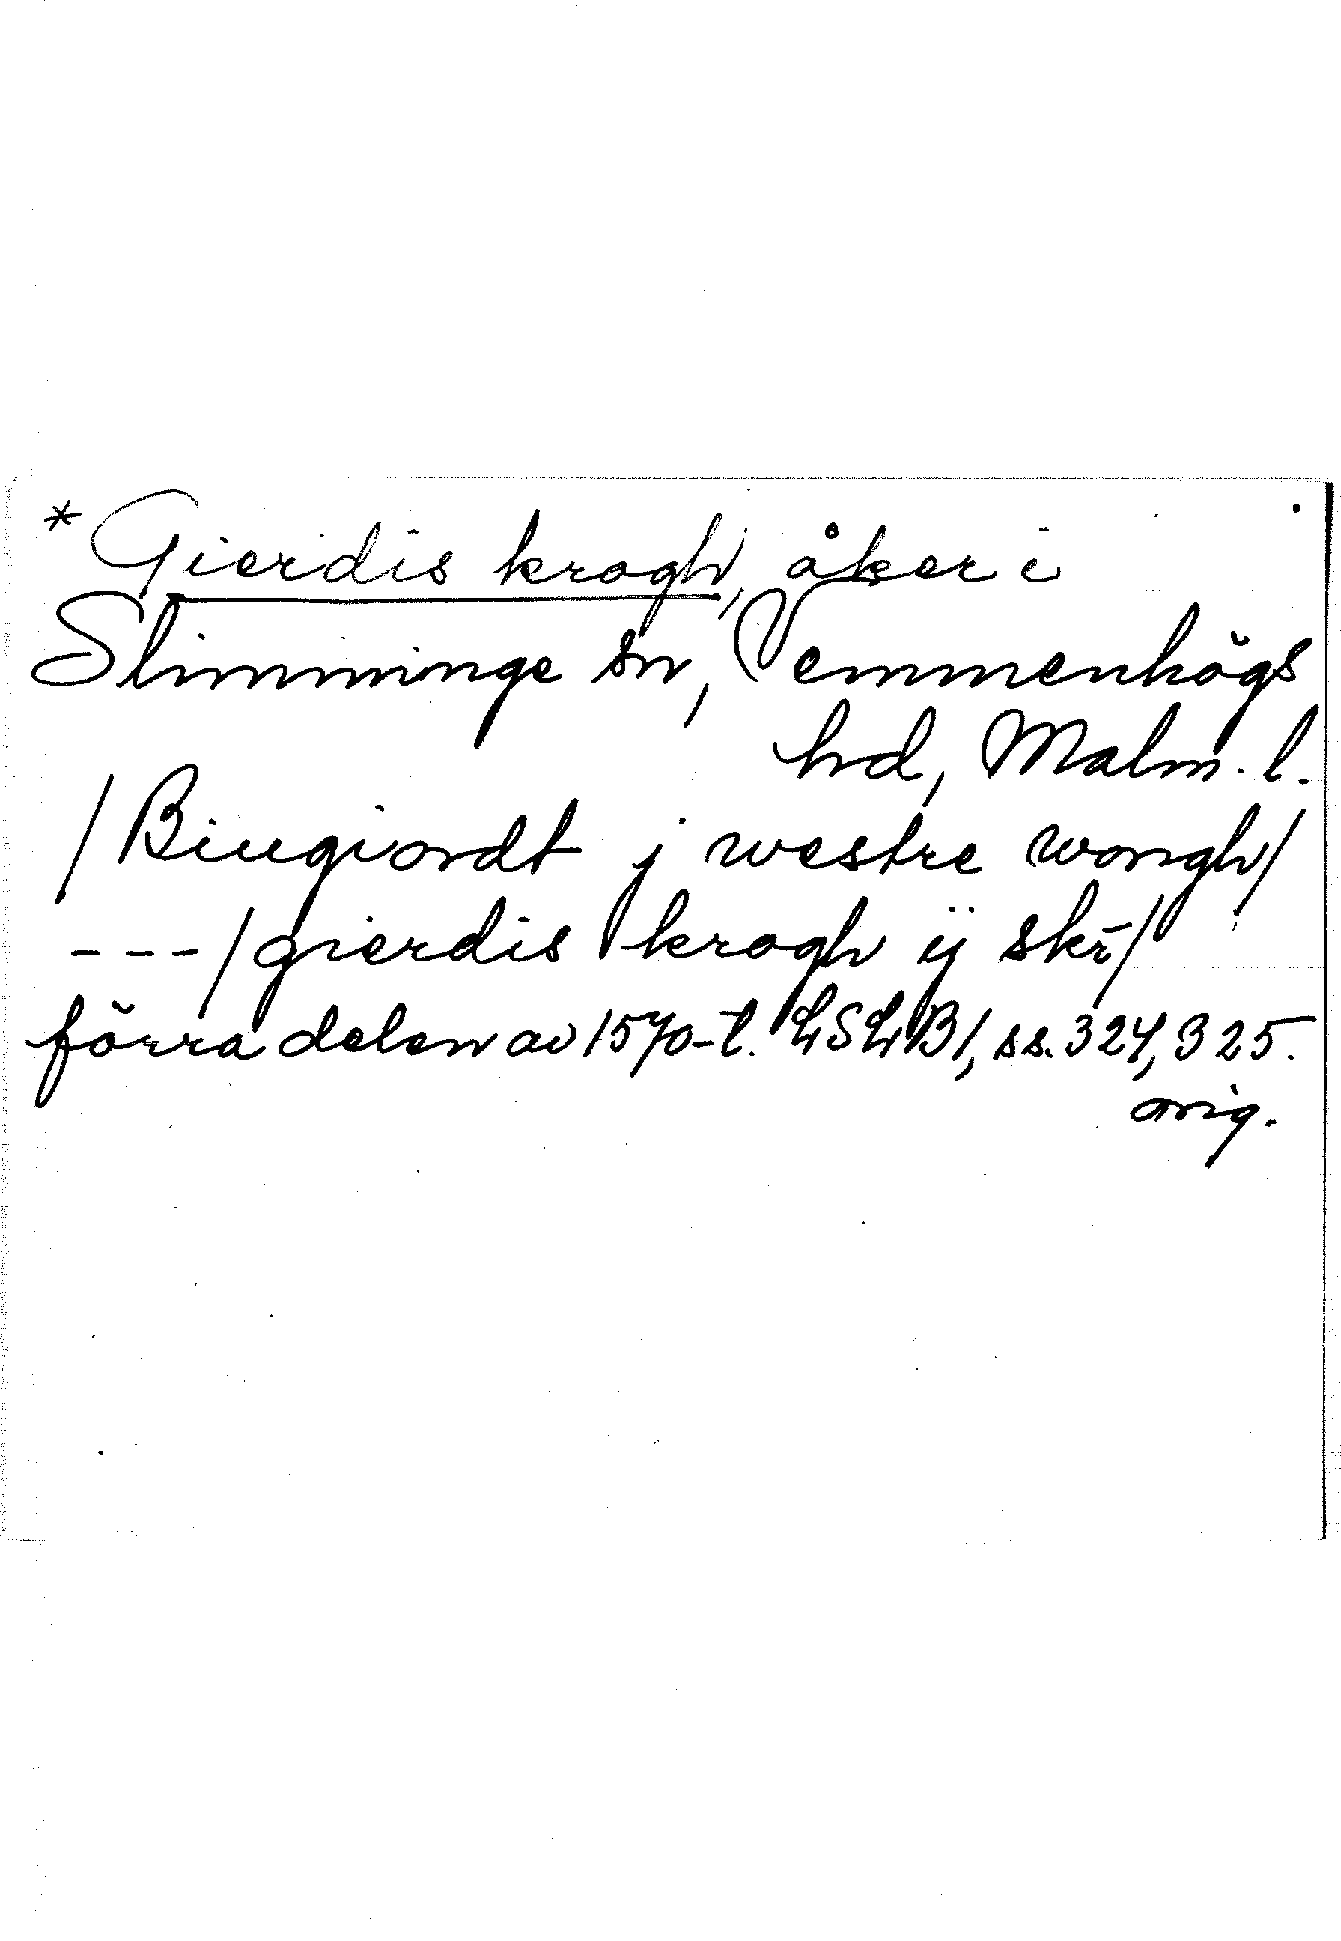 * Gierdis krogh, åker i
Slimminge sn, Vemmenhögs
hd, Malm. l.
/Biugiordt j westre wongh/
---/gierdis krogh ij skr̄/
förra delen av 1570-t. LSLB1, ss. 324, 325.
orig.